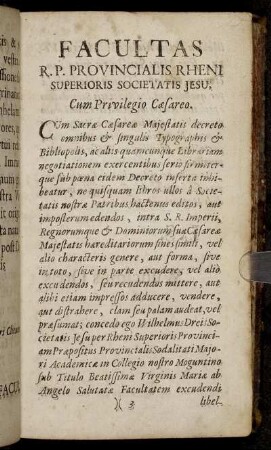 FACULTAS
R. P. PROVINCIALIS RHENI
SUPERIORIS SOCIETATIS JESU.
Cum Privilegio Cæsareo.
CUm Sacræ Cæsareæ Majestatis decreto
omnibus & singulis Typographis &
Bibliopolis, ac aliis quamcunque Librariam
negotiationem exercentibus serio firmiter-
que sub pœna eidem Decreto inserta inhi-
beatur, ne quisquam libros ullos à Socie-
tatis nostræ Patribus hactenus editos, aut
imposterum edendos, intra S. R. Imperii,
Regnorumque & Dominiorum suæ Cæsareæ
Majestatis hæreditariorum fines simili, vel
alio characteris genere, aut forma, sive
in toto, sive in parte excudere, vel aliò
excudendos, seu recudendos mittere, aut
alibi etiam impressos adducere, vendere,
aut distrahere, clam seu palam audeat, vel
præsumat; concedo ego Wilhelmus Dreis So-
cietatis Jesu per Rheni Superioris Provinci-
am Præpositus Provincialis Sodalitati Majo-
ri Academicæ in Collegio nostro Moguntino
sub Titulo Beatissimæ Virginis Mariæ ab
Angelo Salutatæ Facultatem excudendi
)( 3 libel-